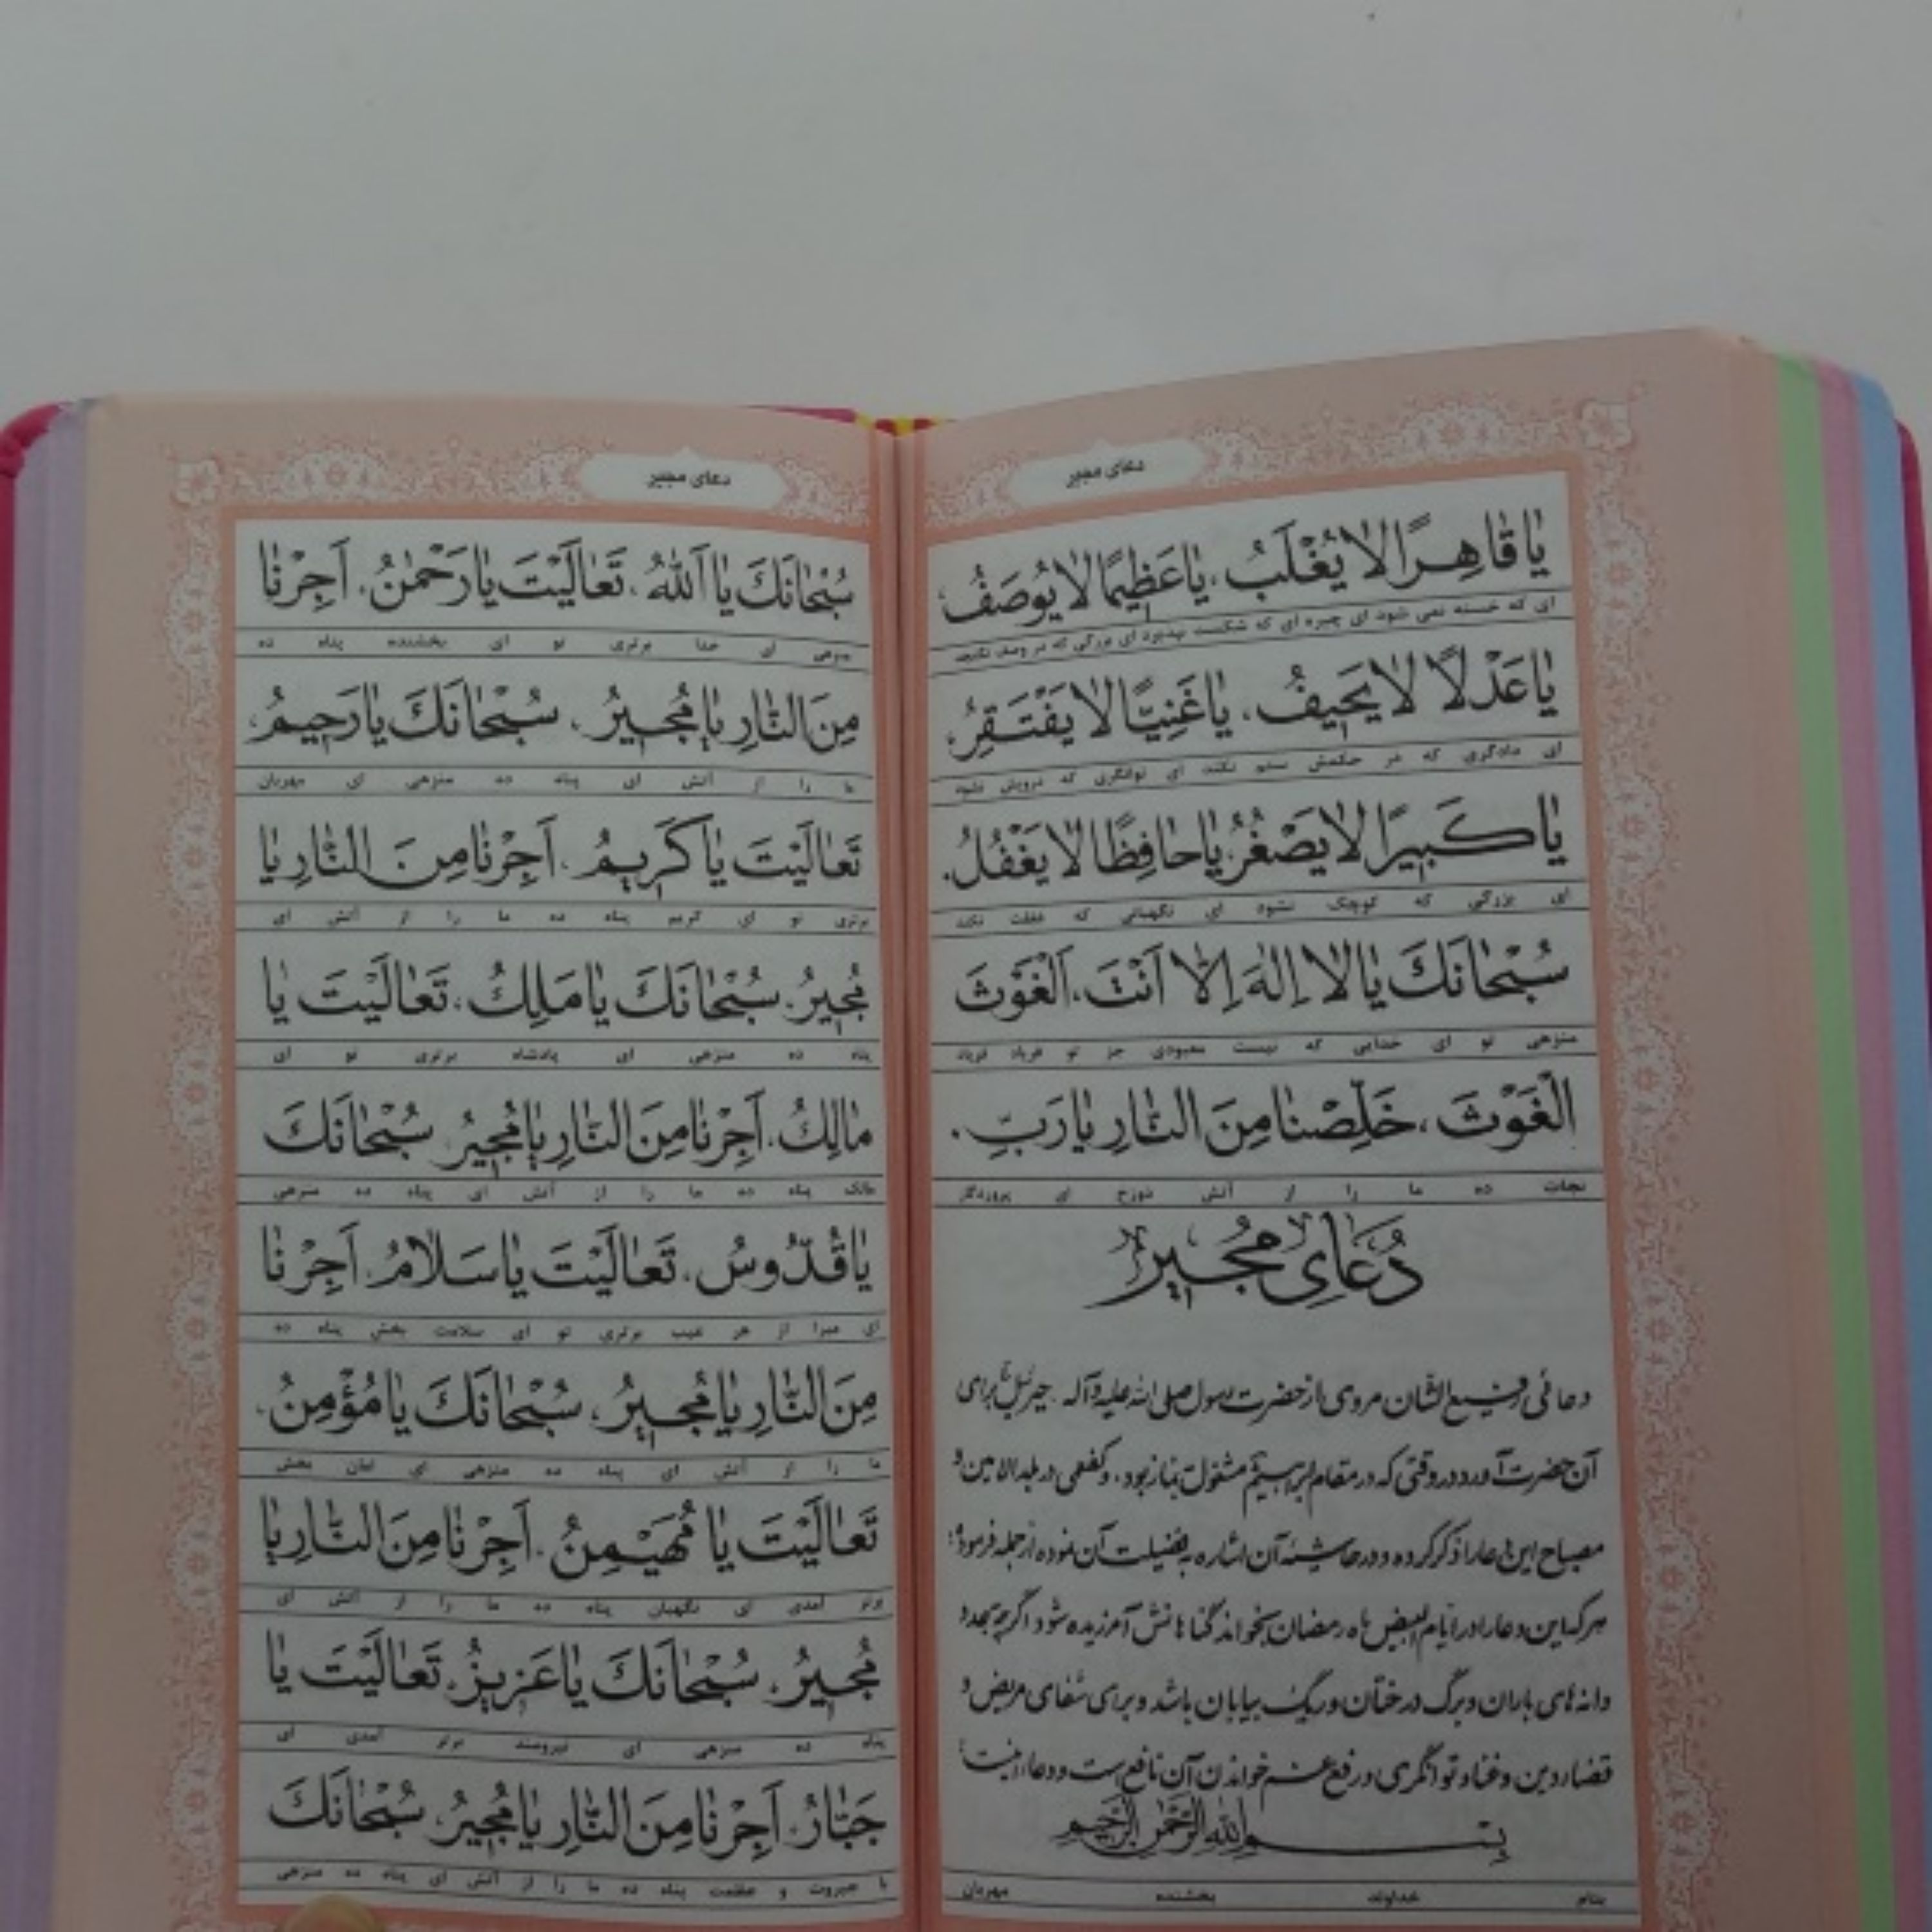 دعای مجیر
یا قاهِرًا لا یُغْلَبُ، یا عَظیمًا لا یُوصَفُ،
ای که خسته نمی شود ای چیره ای که شکست نپذیرد ای بزرگی که در وصف نگنجد
یا عَدْلًا لا یَحیفُ، یا غَنِیًّا لا یَفْتَقِرُ،
ای دادگری که در حکمش ستم نکند ای توانگری که درویش نشود
یا کَبیرًا لا یَصْغُرُ، یا حافِظًا لا یَغْفُلُ.
ای بزرگی که کوچک نشود ای نگهبانی که غفلت نکند
سُبْحانَكَ یا لا اِلٰهَ اِلّا اَنْتَ، اَلْغَوْثَ
منزهی تو ای خدایی که نیست معبودی جز تو فریاد فریاد
اَلْغَوْثَ، خَلِّصْنا مِنَ النّارِ یا رَبِّ.
نجات ده ما را از آتش دوزخ ای پروردگار
دُعَایِ مُجیر
دعائی رفیع الشان مروی از حضرت رسول صلی الله علیه و آله جبرئیل برای
آن حضرت آورد در وقتی که در مقام ابراهیم مشغول بنماز بود، و کفعمی در بلد الامین و
مصباح این دعا را ذکر کرده و در حاشیه آن اشاره به فضیلت آن نموده از جمله فرموده:
هر که این دعا را در ایام البیض ماه رمضان بخواند گناهانش آمرزیده شود اگر چه بعدد
دانه های باران و برگ درختان و ریگ بیابان باشد و برای شفای مریض و
قضاء دین و غنا و توانگری و رفع غم خواندن آن نافع است و دعا اینست:
بِسْمِ اللّٰهِ الرَّحْمٰنِ الرَّحیمِ
بنام خداوند بخشنده مهربان
دعای مجیر
سُبْحانَكَ یا اَللّٰهُ، تَعالَیْتَ یا رَحْمٰنُ، اَجِرْنا
منزهی ای خدا برتری تو ای بخشنده پناه ده
مِنَ النّارِ یا مُجیرُ، سُبْحانَكَ یا رَحیمُ،
ما را از آتش ای پناه ده منزهی ای مهربان
تَعالَیْتَ یا کَریمُ، اَجِرْنا مِنَ النّارِ یا
برتری تو ای کریم پناه ده ما را از آتش ای
مُجیرُ، سُبْحانَكَ یا مَلِكُ، تَعالَیْتَ یا
پناه ده منزهی ای پادشاه برتری تو ای
مالِكُ، اَجِرْنا مِنَ النّارِ یا مُجیرُ، سُبْحانَكَ
مالک پناه ده ما را از آتش ای پناه ده منزهی
یا قُدّوسُ، تَعالَیْتَ یا سَلامُ، اَجِرْنا
ای مبرا از هر عیب برتری تو ای سلامت بخش پناه ده
مِنَ النّارِ یا مُجیرُ، سُبْحانَكَ یا مُؤْمِنُ،
ما را از آتش ای پناه ده منزهی ای امان بخش
تَعالَیْتَ یا مُهَیْمِنُ، اَجِرْنا مِنَ النّارِ یا
برتر آمدی ای نگهبان پناه ده ما را از آتش ای
مُجیرُ، سُبْحانَكَ یا عَزیزُ، تَعالَیْتَ یا
پناه ده منزهی ای نیرومند برتر آمدی ای
جَبّارُ، اَجِرْنا مِنَ النّارِ یا مُجیرُ، سُبْحانَكَ
با جبروت و عظمت پناه ده ما را از آتش ای پناه ده منزهی